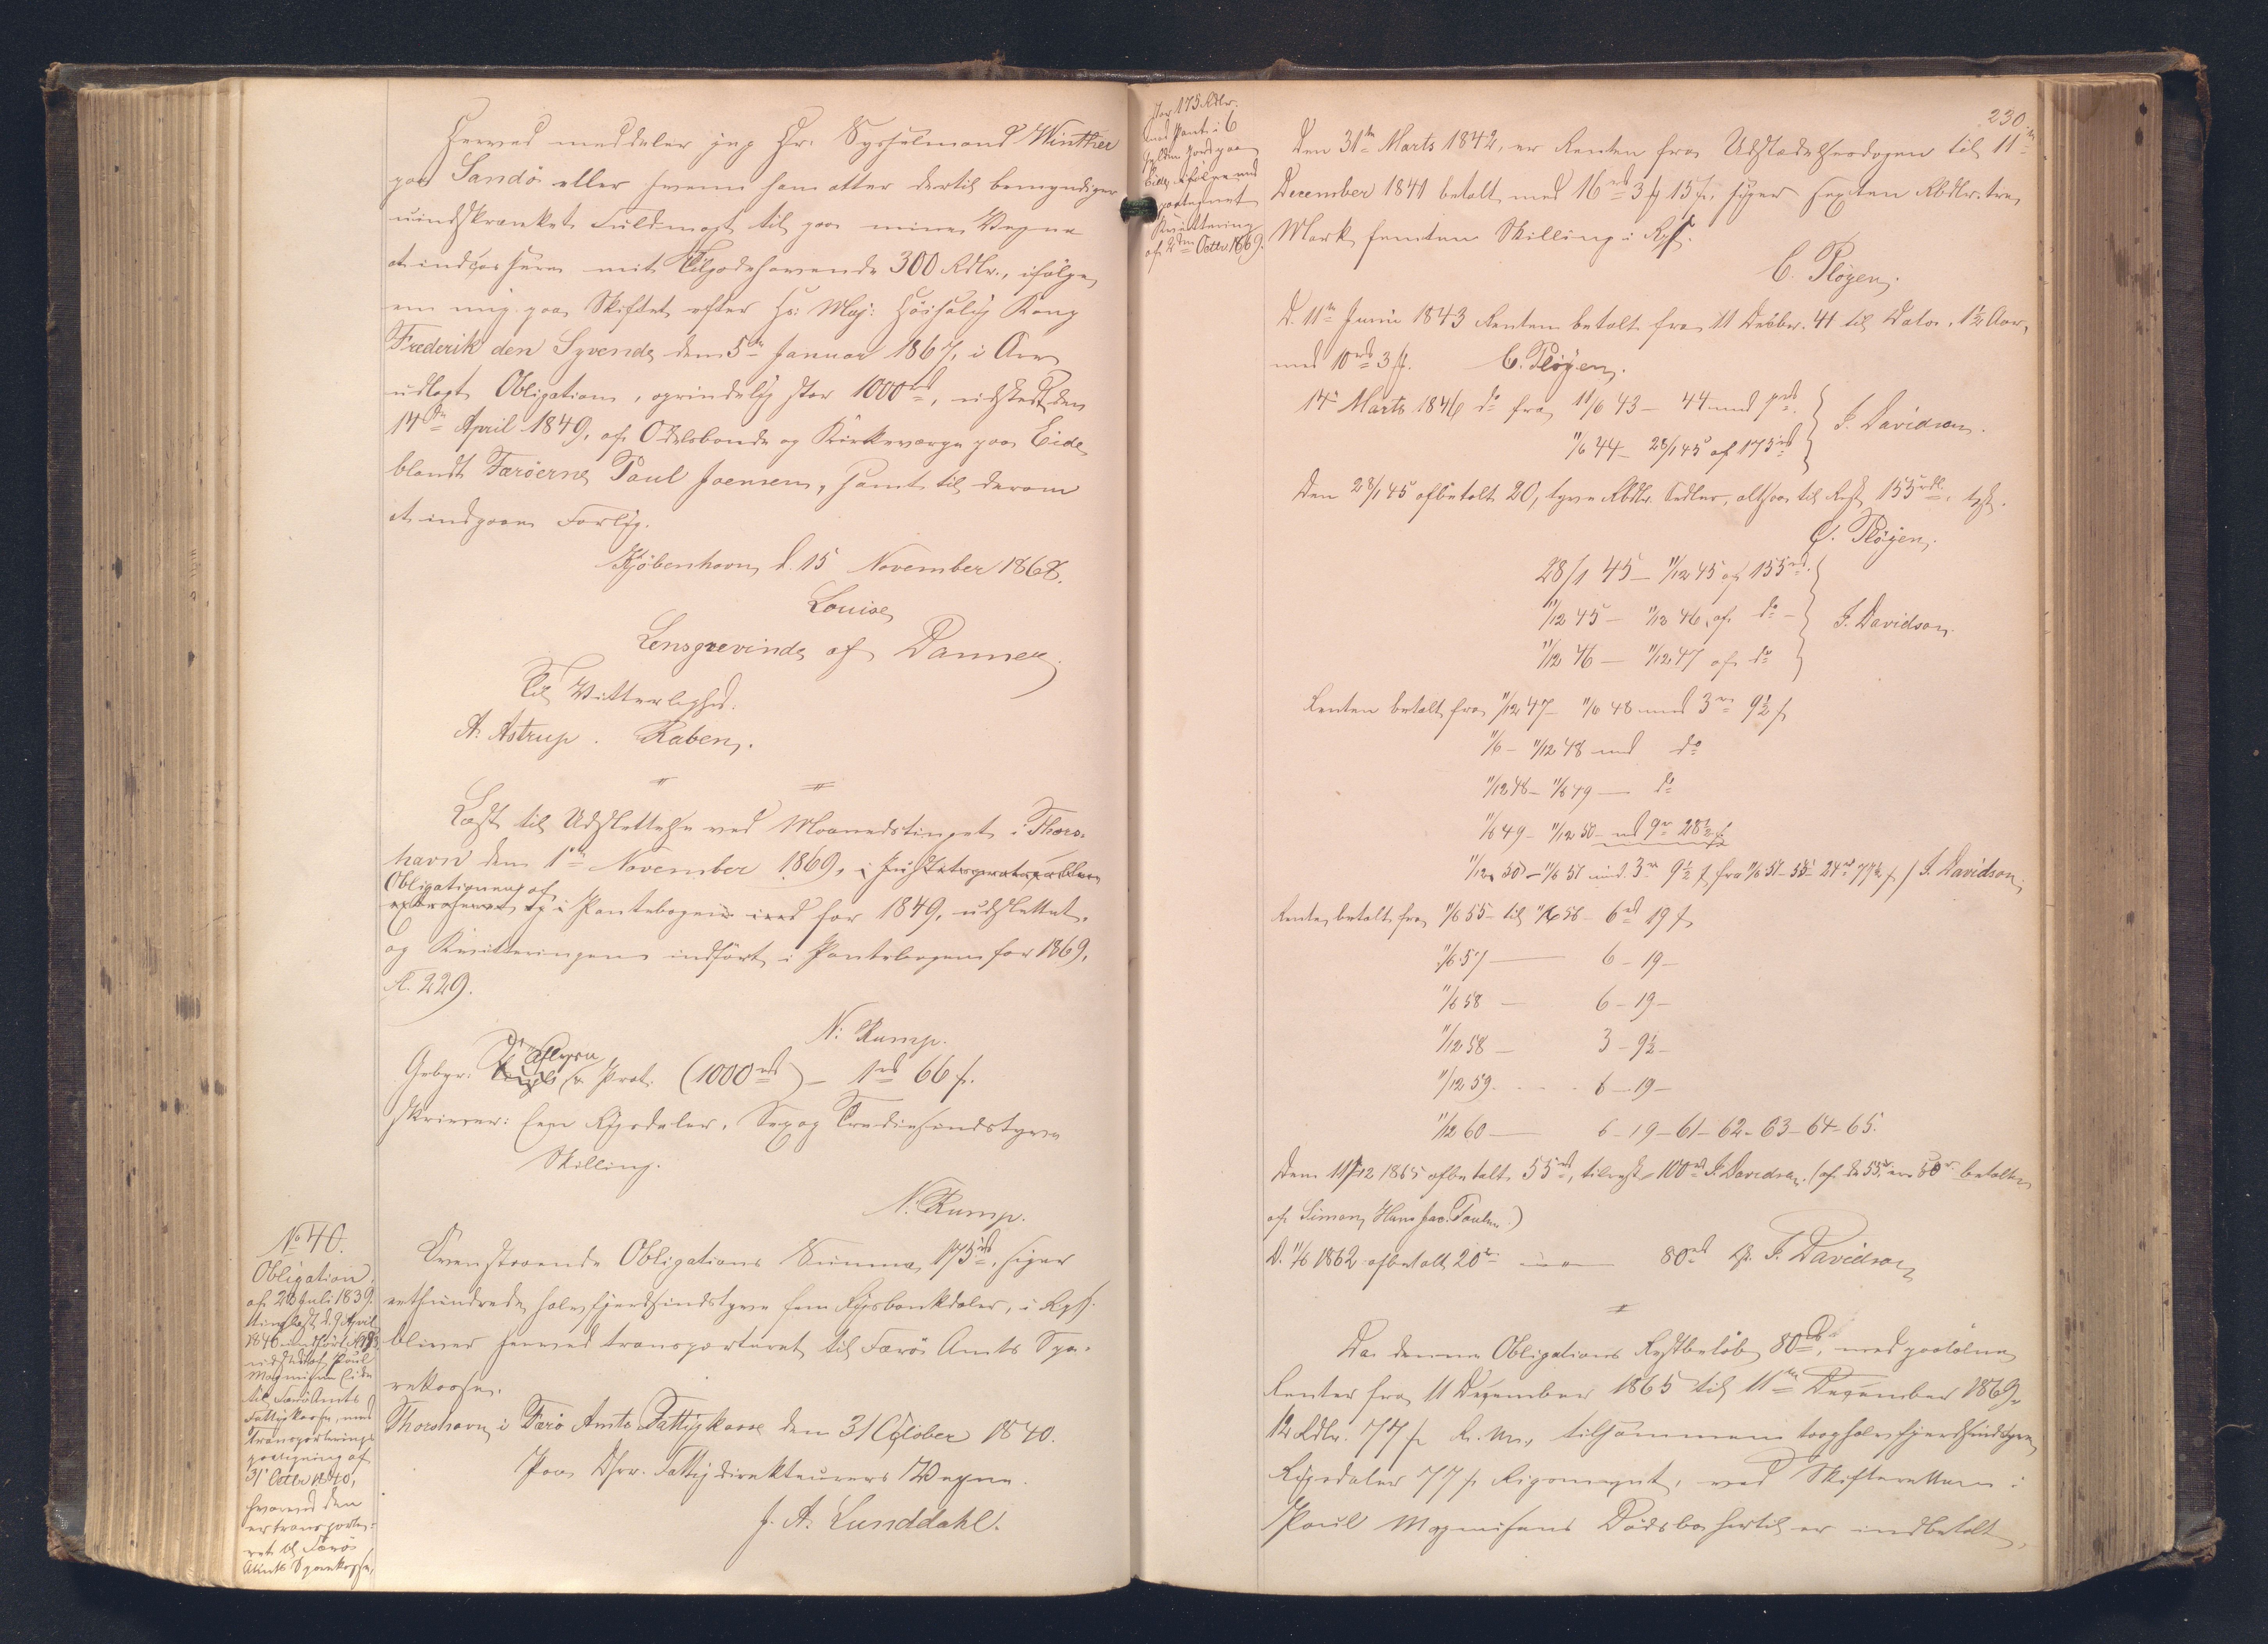 Herved meddeler jeg Hr. Sysselmand Winther
paa Sandö eller hvem han atter dertil bemyndiger
uindskrænket Fuldmagt til paa mine Vegne
at indcassere mit Tilgodehavende 300 Rdlr., ifölge
en mig paa Skiftet efter Hs: Maj: Höisalig Kong
Frederik den Syvende den 5te Januar 1867, i Arv
udlagt Obligation, oprindelig stor 1000 rd, udstedt den
14de April 1849, af Odelsbonde og Kirkeværge paa Eide
blandt Færöerne Paul Joensen, samt til derom
at indgaae Forlig.
Kjöbenhavn, d. 15 November 1868.
Louise
Lensgrevinde af Danner
Til Vitterlighed:
A. Astrup. Raben.
Læst til Udslettelse ved Maanedstinget i Thors-
havn den 1ste November 1869,
Obligationen af
i Pantebogen for 1849, udslettet,
og Kvitteringen indfört i Pantebogen for 1869,
A. 229.
N: Rump.
Aflysn
Gebyr: Prot. (1000 rd) – 1 rd 66 s.
skriver: Een Rigsdaler, Sex og Tredsindstyve
Skilling.
N. Rump.
No 40.
Obligation
af 20 Juli 1839
tinglæst d. 9 April
1846 indfört
udstedt af Poul
Magnussen Eide
til Færö Amts
Fattigkasse, med
Transporterings
paategning af
31 Octbr 1840,
hvorved den
er transporte-
ret til Færö
Amts Sparekasse,
Ovenstaaende Obligations Summa, 175 rd, siger
eethundrede halvfjerdsindstyve fem Rigsbankdaler, i Rgs.
bliver herved transporteret til Færö Amts Spa-
rekasse.
Thorshavn, i Færö Amts Fattigkasse den 31 October 1840.
Paa Dhrr. Fattigdirekteurers Vegne.
J. A. Lunddahl.
stor 175 Rdlr.
med Pant i 6
Gylden Jord paa
Eide, ifölge
paategnet
Kvittering
af 2den Octbr 1869.
230
Den 31te Marts 1842, er Renten fra Udstædelsesdagen til 11te
December 1841 betalt med 16 rd 3 # 15 s, siger sexten Rbdlr. tre
Mark femten Skilling i Rgs.
C. Plöyen.
D. 11te Junii 1843 Renten betalt fra 11 Decbr. 41 til Dato, 1½ Aar,
med 10 rd 3 #. C. Plöyen.
14 Marts 1846 do fra 11/6 43 – 44 med 7 rd.
11/6 44 – 28/1 45 af 175 rd
J. Davidson.
Den 28/1 45 afbetalt 20, tyve Rbdlr. Sedler, altsaa til Rest 155 rdl.
C. Plöyen.
28/1 45 – 11/12 45 af 155 rd.
11/12 45 – 11/12 46 af do –
11/12 46 – 11/12 47 af do
J. Davidson.
Renten betalt fra 11/12 47 – 11/6 48 med 3 rd 9½ s
11/6 – 11/12 48 med do
11/12 48 – 11/6 49 — do
11/6 49 – 11/12 50 – med 9 rd 28½ s
11/12 50 – 11/6 51 med 3 rd 9½ s fra 11/6 51 – 55 24 rd 77 s / J. Davidson.
Rente betalt fra 11/6 55 – til 11/6 56 – 6 rd 19 s
11/6 57 — 6 – 19 –
11/6 58 — 6 – 19 –
11/12 58 — 3 – 9½ –
11/12 59. . . . . 6 – 19 –
11/12 60 — 6 – 19 – 61 – 62 – 63 – 64 – 65.
Den 11/12 1865 afbetalt 55 rd, til rest 100 rd J. Davidson. (af de 55 rd er 50 rd betalte
af Simon Hans Jac. Poulsen.)
D. 11/6 1862 afbetalt 20 rd — 80 rd J. Davidson
Da denne Obligations Restbelöb 80 rd, med paalöbne
Renter fra 11 December 1865 til 11te December 1869,
12 Rdlr. 77 s R. M., tilsammen toog halvfjerdsindstyve
Rigsdaler 77 s Rigsmynt, ved Skifteretten i
Poul Magnusens Dödsbo hertil er indbetalt,